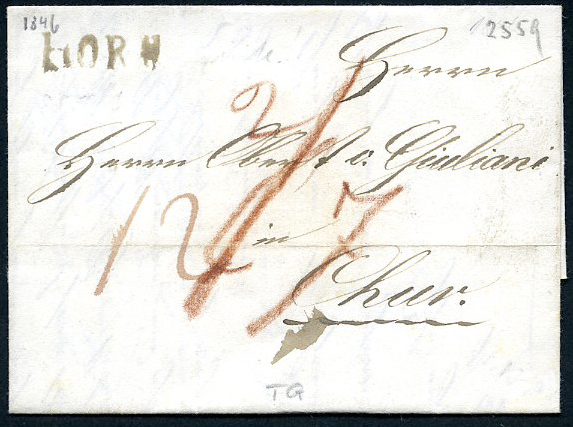 1846
2559
HORN
Herrn
Herrn Oberst v. Giuliani
in
Chur.
12
7
TG